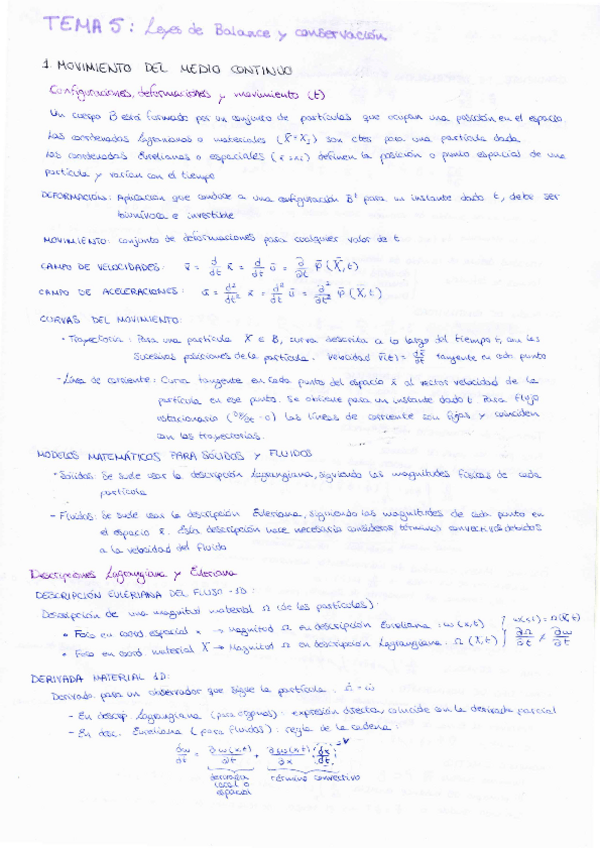 TEMA 5: Leyes de Balance y conservación
1. MOVIMIENTO DEL MEDIO CONTINUO
Configuraciones, deformaciones y movimiento (t)
Un cuerpo B está formado por un conjunto de partículas que ocupan una posición en el espacio.
Las coordenadas lagrangianas o materiales (X̄ = Xi) son ctes para una partícula dada
Las coordenadas Eulerianas o espaciales (x̄ = xi) definen la posición o punto espacial de una
partícula y varían con el tiempo
DEFORMACIÓN: Aplicación que conduce a una configuración B' para un instante dado t, debe ser
biunívoca e invertible
MOVIMIENTO: conjunto de deformaciones para cualquier valor de t
CAMPO DE VELOCIDADES: v̄ = d/dt x̄ = d/dt ū = ∂/∂t φ̄ (X̄, t)
CAMPO DE ACELERACIONES: ā = d²/dt² x̄ = d²/dt² ū = ∂²/∂t² φ̄ (X̄, t)
CURVAS DEL MOVIMIENTO:
- Trayectoria: Para una partícula X ∈ B, curva descrita a lo largo del tiempo t, con las
sucesivas posiciones de la partícula. Velocidad v̄(t) = dx̄/dt tangente en cada punto
- Línea de corriente: Curva tangente en cada punto del espacio x̄ al vector velocidad de la
partícula en ese punto. Se obtiene para un instante dado t. Para flujo
estacionario (∂v/∂t = 0) las líneas de corriente son fijas y coinciden
con las trayectorias.
MODELOS MATEMÁTICOS PARA SÓLIDOS Y FLUIDOS
- Sólidos: Se suele usar la descripción Lagrangiana, siguiendo las magnitudes físicas de cada
partícula
- Fluidos: Se suele usar la descripción Euleriana, siguiendo las magnitudes de cada punto en
el espacio x̄. Esta descripción hace necesario considerar términos convectivos debidos
a la velocidad del fluido
Descripciones Lagrangiana y Euleriana
DESCRIPCIÓN EULERIANA DEL FLUJO - 1D:
Descripción de una magnitud material Ω (de las partículas):
• Foco en coord espacial x → Magnitud Ω en descripción Euleriana: ω(x,t)
• Foco en coord material X → Magnitud Ω en descripción Lagrangiana: Ω(X,t)
ω(x,t) = Ω(X,t)
∂Ω/∂t ≠ ∂ω/∂t
DERIVADA MATERIAL 1D:
Derivada para un observador que sigue la partícula: Ω̇ = ω̇
- En descrip. Lagrangiana (para sólidos): expresión directa, coincide con la derivada parcial
- En desc. Euleriana (para fluidos): regla de la cadena:
dω/dt = ∂ω(x,t)/∂t + ∂ω(x,t)/∂x · ∂x/∂t → v
derivada término convectivo
local o
espacial